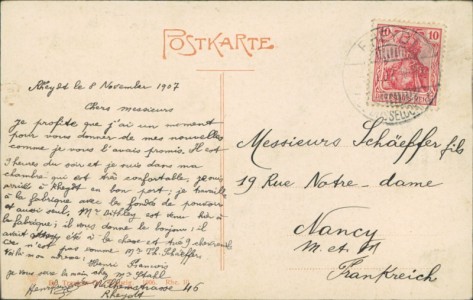 POSTKARTE
Rheydt le 8 November 1907
Chers messieurs
je profite que j'ai un moment
pour vous donner de mes nouvelles
comme je vous l'avais promis. Il est
9 heures du soir et je suis dans ma
chambre qui est très confortable, je suis
arrivé à Rheydt en bon port; je travaille
à la fabrique avec le fondé de pouvoirs
et aussi seul; Mr est venu hier à
la fabrique; il vous donne le bonjour; il
avait été à la chasse et tué 9 chevreuils
ce n'est pas comme Mr Th. Schaeffer.
Voilà mon adresse:
Henri François
je vous serre la main chez Mr Stahl
Wilhelmstrasse 46
Rheydt
10 10
Messieurs Schäeffer fils
19 Rue Notre-dame
Nancy
M. et M
Frankreich